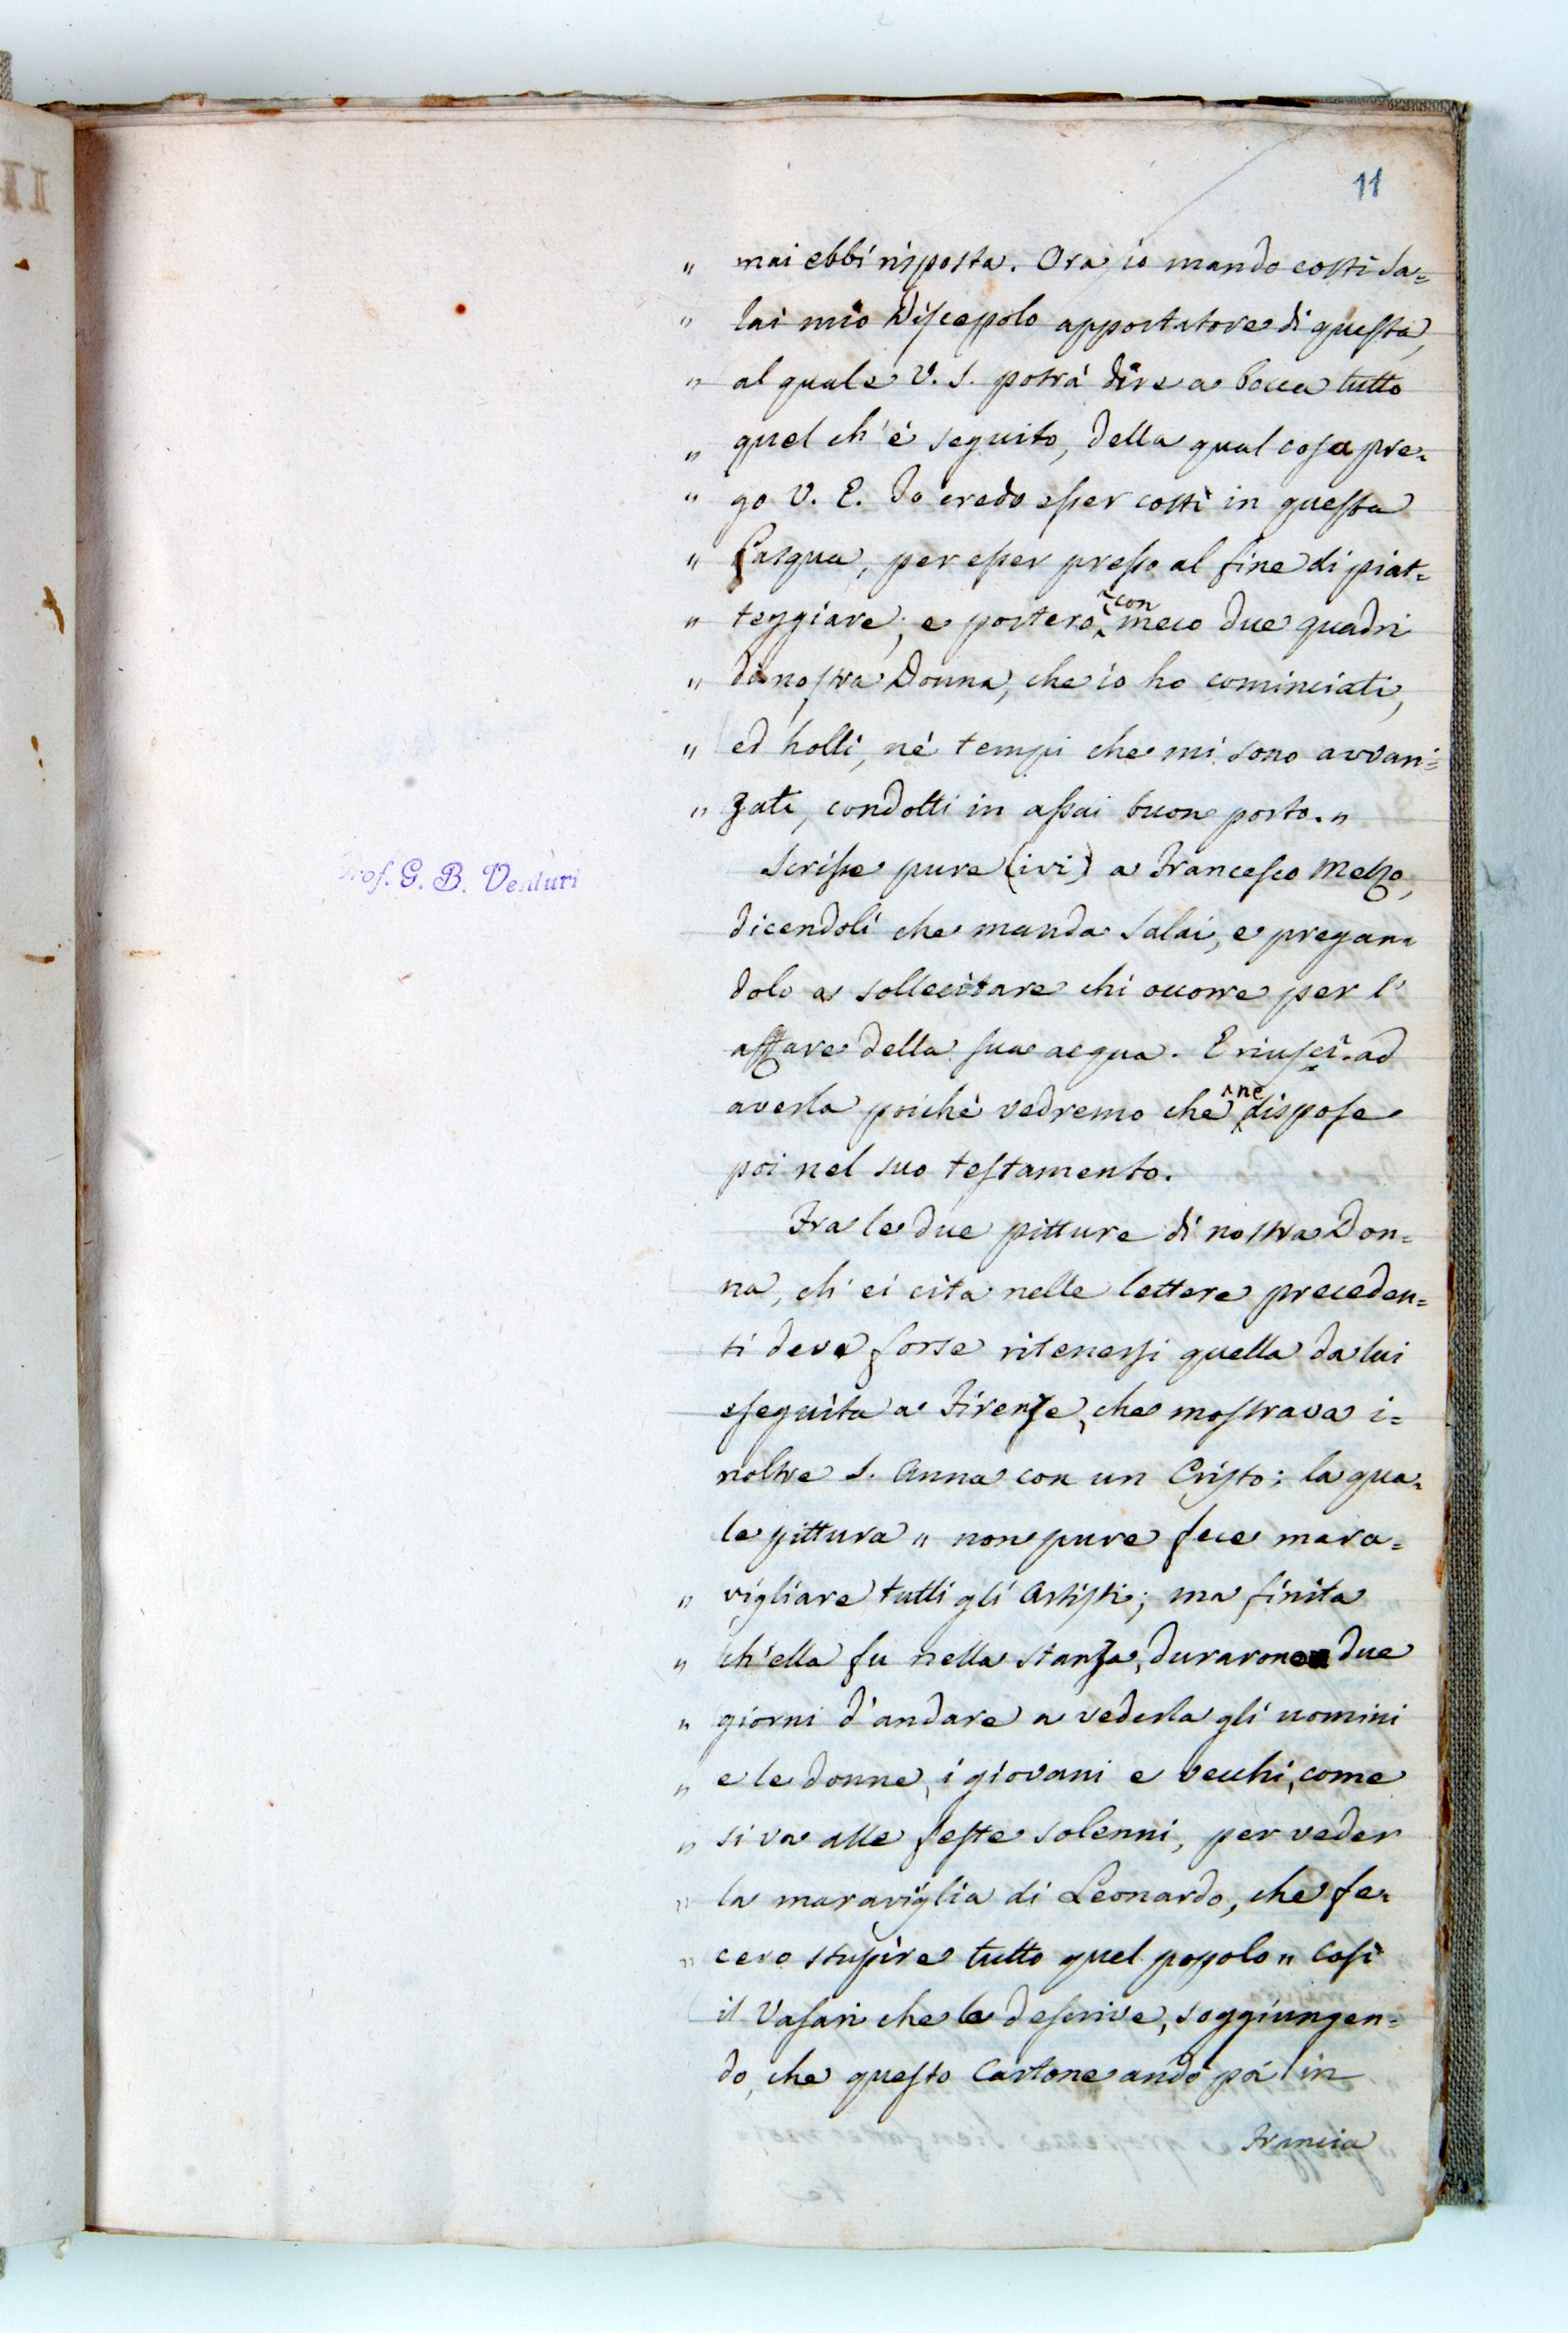 11
„ mai ebbi risposta. Ora io mando costì Sa=
„ lai mio Discepolo apportatore di questa,
„ al quale V. S. potrà dire a bocca tutto
„ quel ch'è seguito, della qual cosa pre=
„ go V. E. Io credo esser costì in questa
„ Pasqua, per esser presso al fine di piat=
„ teggiare; e porterò con meco due quadri
„ di nostra Donna, che io ho cominciati,
„ ed holli, nè tempi che mi sono avvan=
„ zati, condotti in assai buon porto. „
Scrisse pure (ivi) a Francesco Melzo,
dicendoli che manda Salai, e pregan=
dolo a sollecitare chi occorre per l'
affare della sua acqua. E riuscì ad
averla poichè vedremo che ne dispose
poi nel suo testamento.
Fra le due pitture di nostra Don=
na, ch'ei cita nelle lettere preceden=
ti deve forse ritenersi quella da lui
eseguita a Firenze, che mostrava i=
noltre S. Anna con un Cristo; la qua=
le pittura „ non pure fece mara=
„ vigliare tutti gli Artisti; ma finita
„ ch'ella fu nella stanza, durarono due
„ giorni d'andare a vederla gli uomini
„ e le donne, i giovani e vecchi, come
„ si va alle feste solenni, per veder
„ la maraviglia di Leonardo, che fe=
„ cero stupire tutto quel popolo „ Così
il Vasari che la descrive, soggiungen=
do, che questo Cartone andò poi in
Francia
Prof. G. B. Venturi